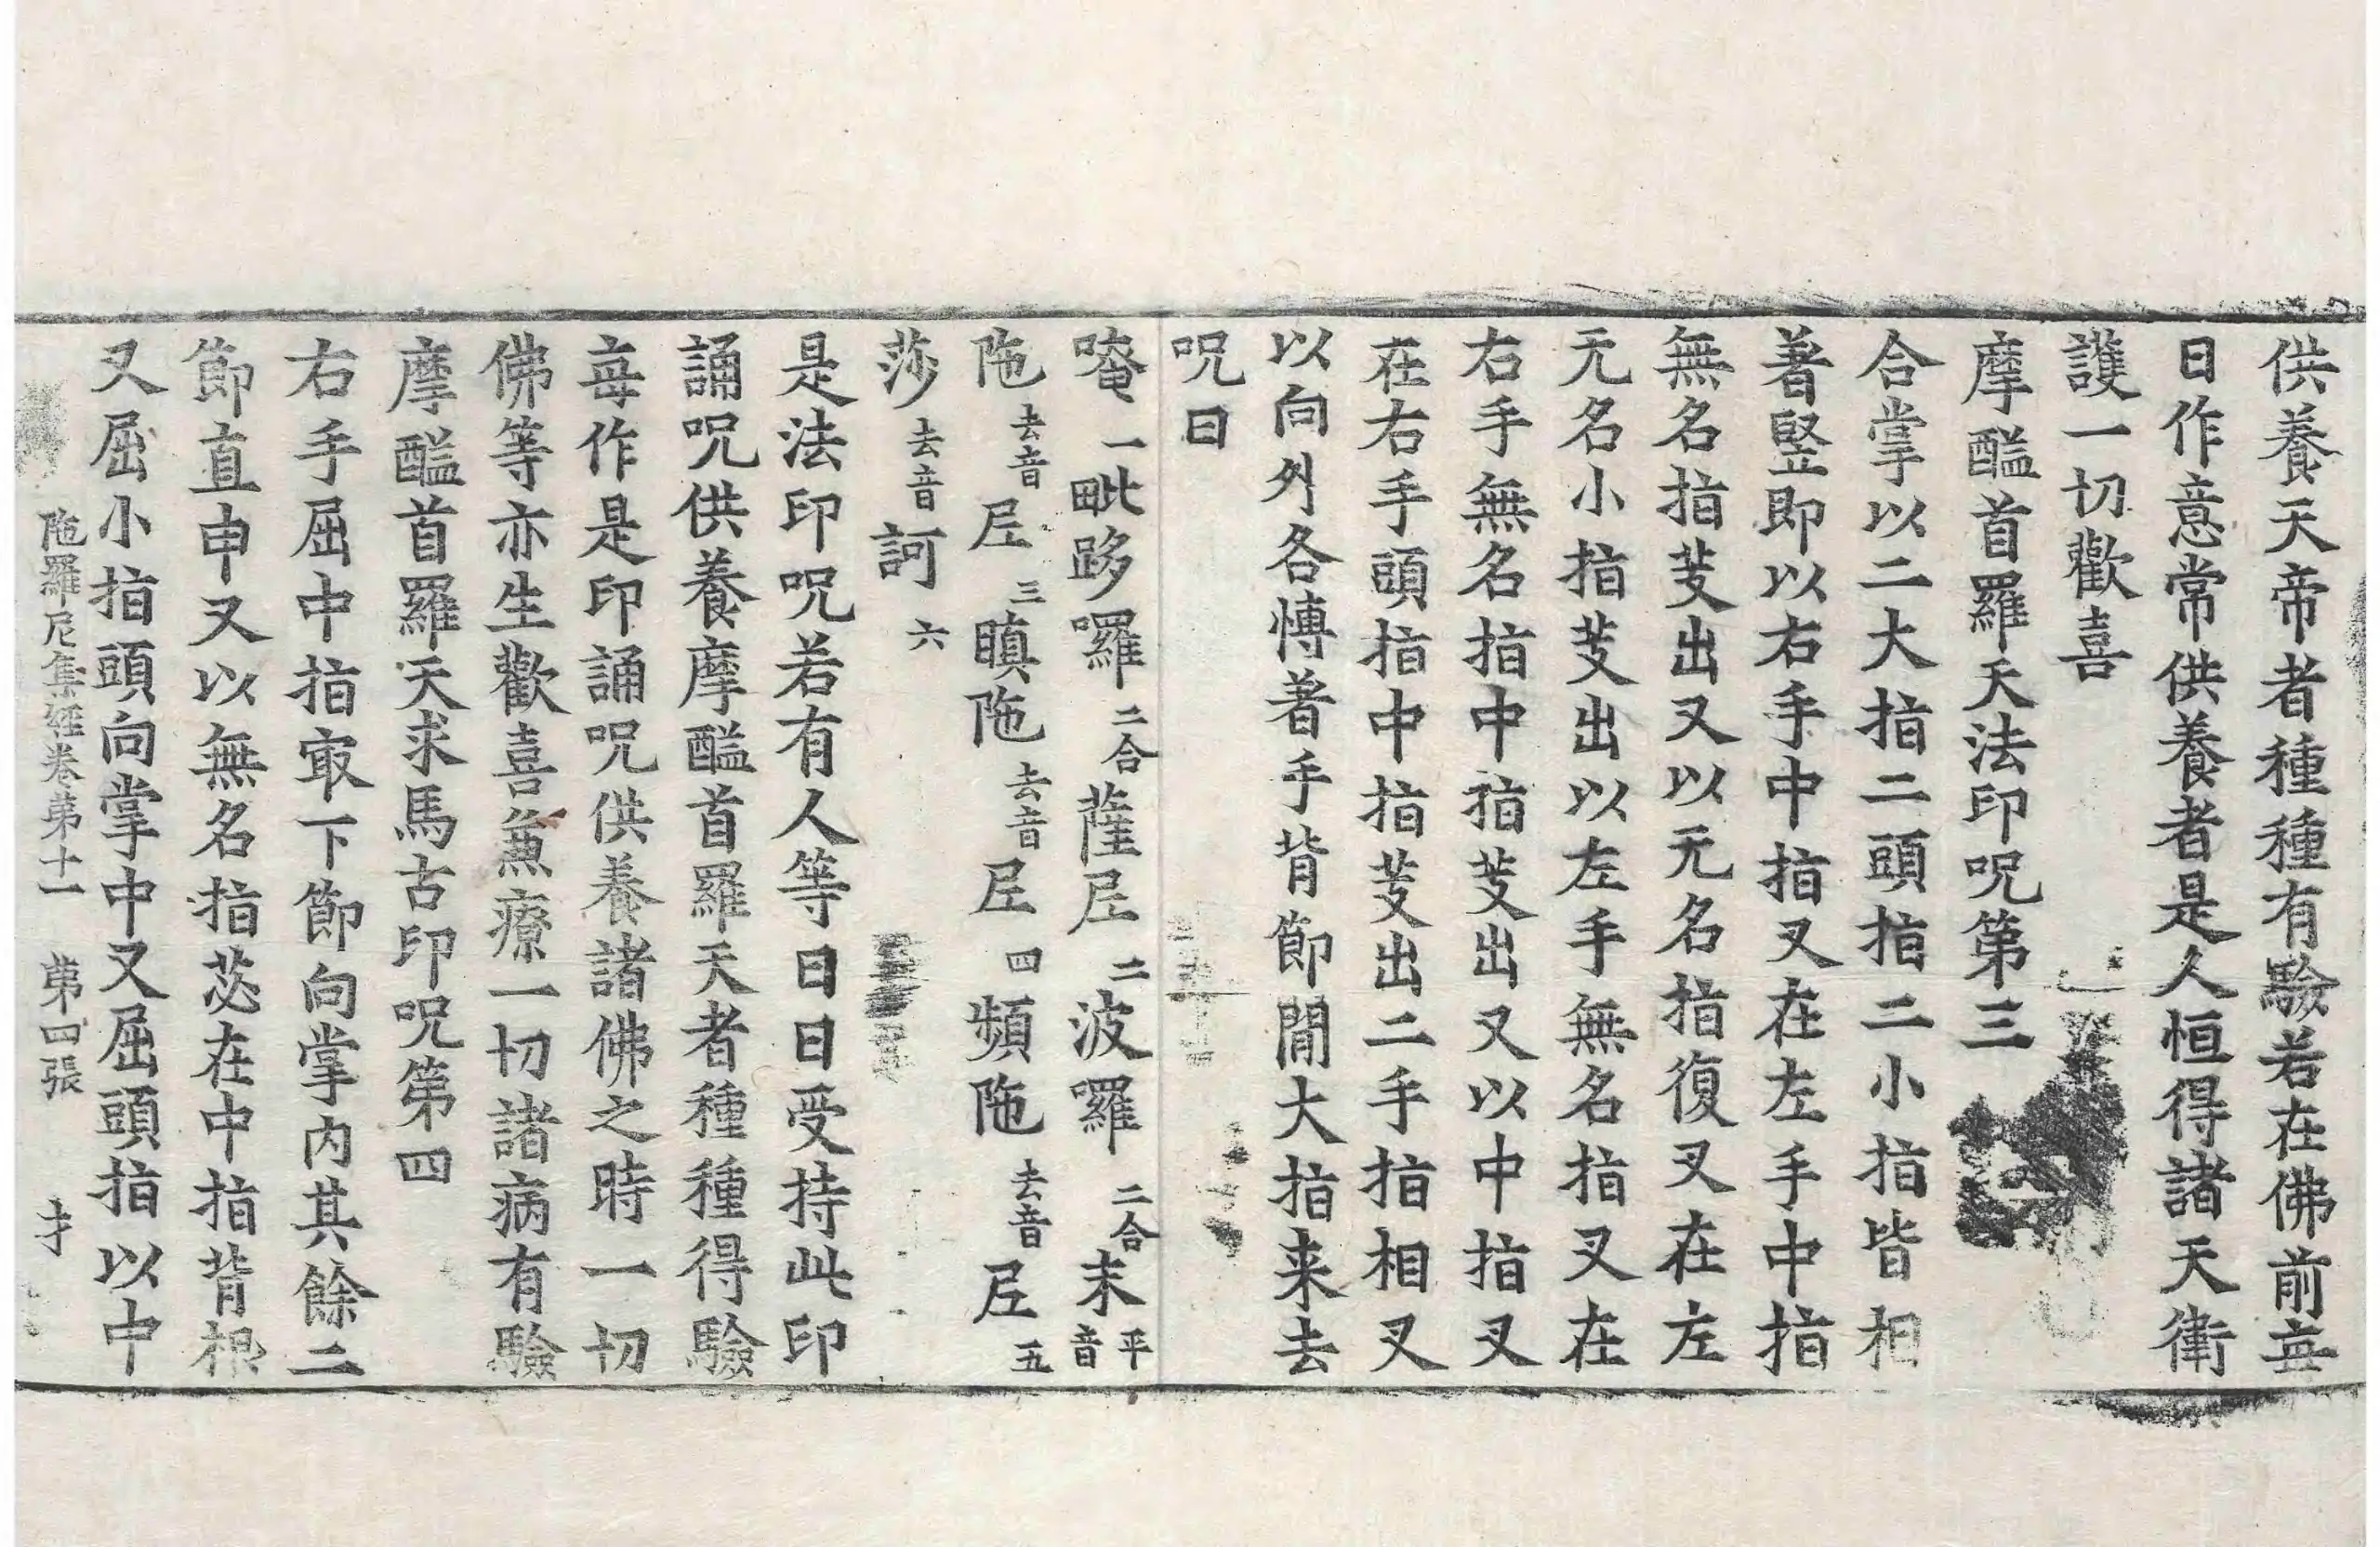 供養天帝者種種有驗若在佛前每
日作意常供養者是人恒得諸天衛
護一切歡喜
摩醯首羅天法印呪第三
合掌以二大指二頭指二小指皆相
著竪即以右手中指叉在左手中指
無名指岐出又以无名指復叉在左
无名小指岐出以左手無名指叉在
右手無名指中指岐出又以中指叉
在右手頭指中指岐出二手指相叉
以向外各愽著手背節間大指来去
呪曰
唵一毗跢囉二合薩𡰱二波囉二合末平音
陁去音𡰱三瞋陁去音𡰱四頻陁去音𡰱五
莎去音訶六
是法印呪若有人等日日受持此印
誦呪供養摩醯首羅天者種種得驗
每作是印誦呪供養諸佛之時一切
佛等亦生歡喜兼療一切諸病有驗
摩醯首羅天求馬古印呪第四
右手屈中指㝡下節向掌内其餘二
節直申又以無名指苾在中指背根
又屈小指頭向掌中又屈頭指以中
陁羅尼集經卷第十一 第四張 才